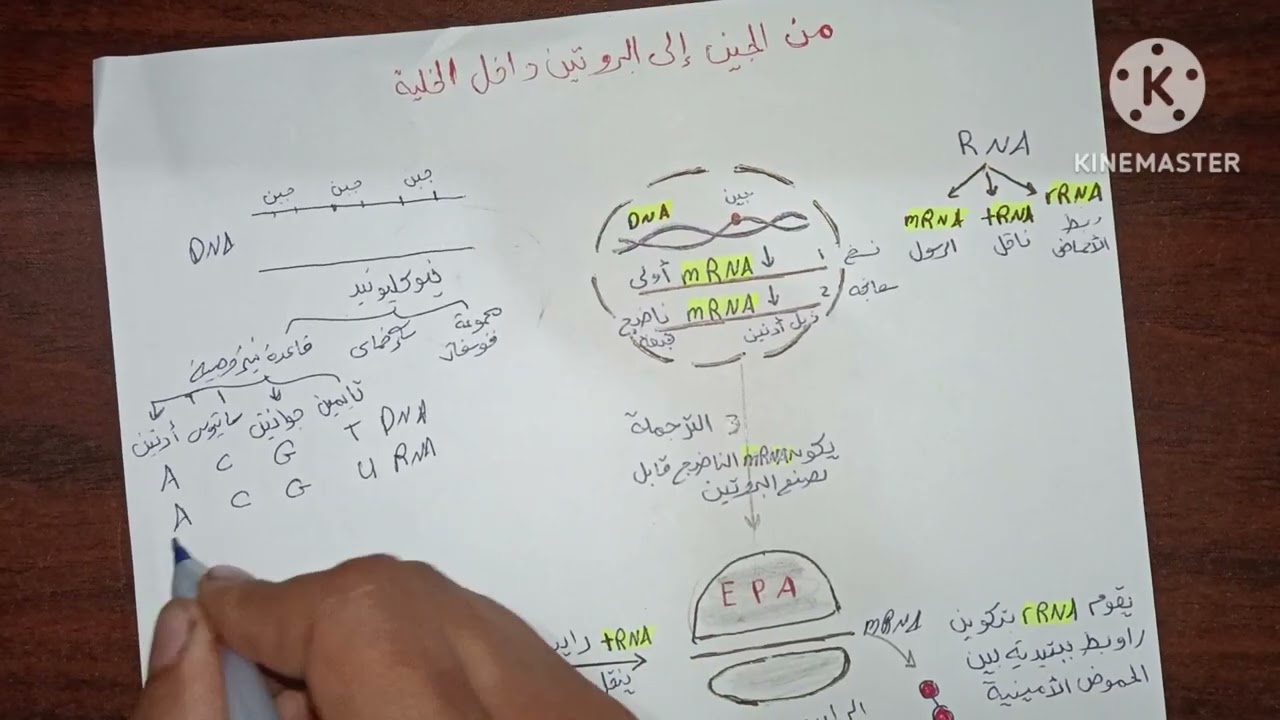 من الجين إلى البروتين داخل الخلية
K
KINEMASTER
RNA
mRNA tRNA rRNA
الرسول ناقل ربط
الأحماض
DNA جين
1 نسخ
أولي mRNA
2 معالجة
ناضج mRNA
قبعة ذيل أدنين
3 الترجمة
يكون mRNA الناضج قابل
لصنع البروتين
جين جين جين
DNA
نيوكليوتيد
مجموعة سكر خماسي قاعدة نيتروجينية
فوسفات
تايمين جوانين سايتوسين أدنين
A C G T DNA
A C G U RNA
E P A
mRNA
tRNA
ينقل
يقوم rRNA بتكوين
روابط ببتيدية بين
الحموض الأمينية